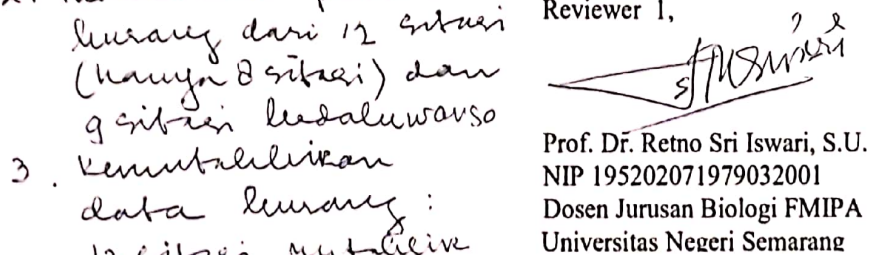 kurang dari 12 sitasi
(hanya 8 sitasi) dan
9 sitasi kadaluwarso
3. Kemutakhiran
data kurang:
12 sitasi mutakhir
Reviewer 1,
Prof. Dr. Retno Sri Iswari, S.U.
NIP 195202071979032001
Dosen Jurusan Biologi FMIPA
Universitas Negeri Semarang